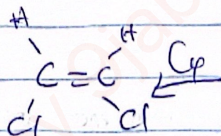 H H
C=C
Cl Cl